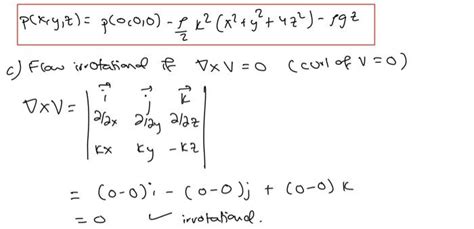 p(x,y,z) = p(0,0,0) - ρ/2 k² (x² + y² + 4z²) - ρgz
c) Flow irrotational if ∇×V = 0 (curl of V = 0)
∇×V = | i⃗ j⃗ k⃗ |
| ∂/∂x ∂/∂y ∂/∂z |
| kx ky -kz |
= (0-0)i - (0-0)j + (0-0)k
= 0 ✓ irrotational.